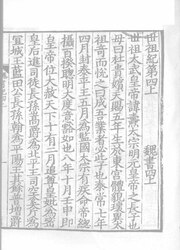 世祖紀第四上 魏書四上
世祖太武皇帝諱燾太宗明元皇帝之長子也
母曰杜貴嬪天賜五年生於東宮體貌瓌異太
祖奇而悅之曰成吾業者必此子也泰常七年
四月封泰平王五月為監國太宗有疾命帝總
攝百揆聰明大度意豁如也八年十一月壬申即
皇帝位大赦天下十有二月追尊皇妣為密
皇后進司徒長孫嵩爵為北平王司空奚斤為
宜城王藍田公長孫翰為平陽王其餘普增爵